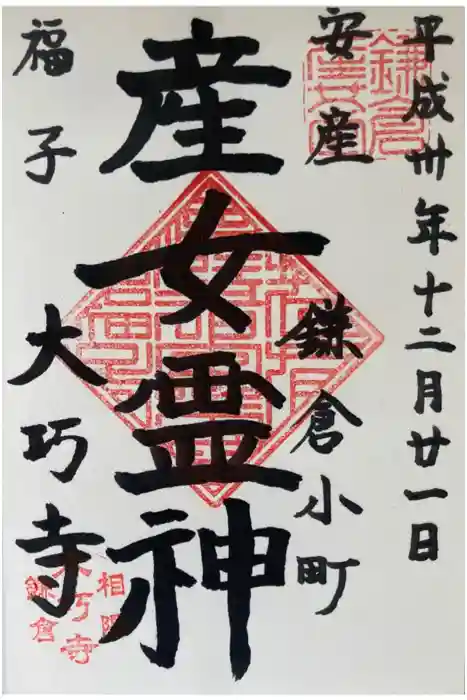 平成卅年十二月廿一日
安産
鎌倉小町
産女霊神
福子
大巧寺
鎌倉
相陽
大巧寺
鎌倉